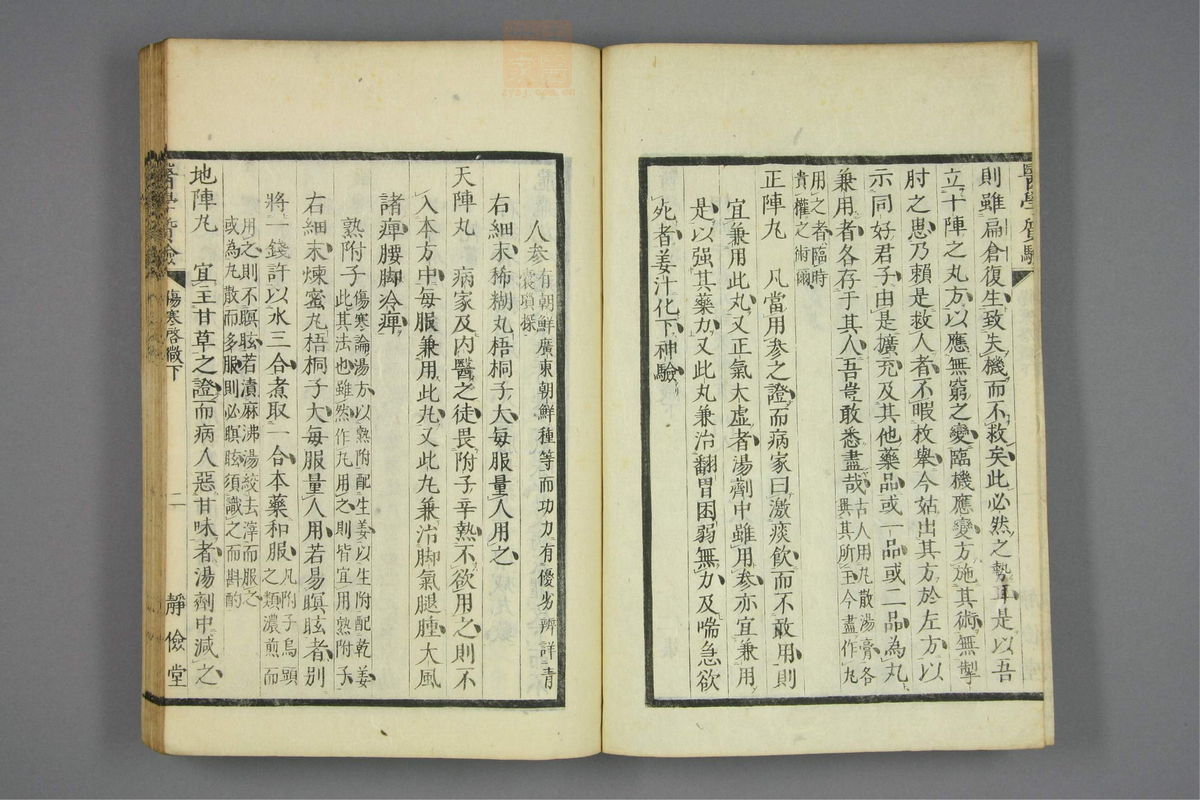 醫學質驗
則雖扁倉復生致失機而不救矣此必然之勢耳是以吾
立十陣之丸方以應無窮之變臨機應變方施其術無掣
肘之患乃賴是救人者不暇枚舉今姑出其方於左方以
示同好君子由是擴充及其他藥品或一品或二品為丸
兼用者各存于其人吾豈敢悉盡哉古人用丸散湯膏各
異其所主今盡作丸
用之者臨時
貴權之術爾
正陣丸　凡當用參之證而病家曰激痰飲而不敢用則
宜兼用此丸又正氣大虛者湯劑中雖用參亦宜兼用
是以强其藥力又此丸兼治翻胃困弱無力及喘急欲
死者姜汁化下神驗
人參有朝鮮廣東朝鮮種等而功力有優劣辨詳青
囊瑣探
右細末稀糊丸梧桐子大每服量人用之
天陣丸　病家及內醫之徒畏附子辛熱不欲用之則不
入本方中每服兼用此丸又此丸兼治脚氣腿腫大風
諸痺腰脚冷痺
熟附子傷寒論湯方以熟附配生姜以生附配乾姜
此其法也雖然作丸用之則皆宜用熟附子
右細末煉蜜丸梧桐子大每服量人用若易瞑眩者別
將一錢許以水三合煮取一合本藥和服凡附子烏頭
之類濃煎而
用之則不瞑眩若漬麻沸湯絞去滓而服之
或為丸散而多服則必瞑眩須識之而斟酌
地陣丸　宜主甘草之證而病人惡甘味者湯劑中減之
醫學質驗
傷寒啓微下
二
靜儉堂